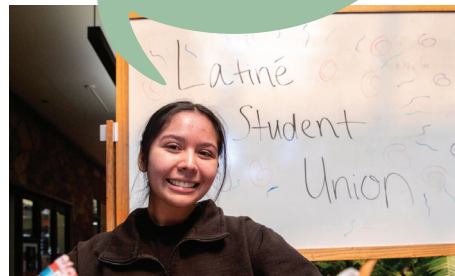 Latiné
Student
Union